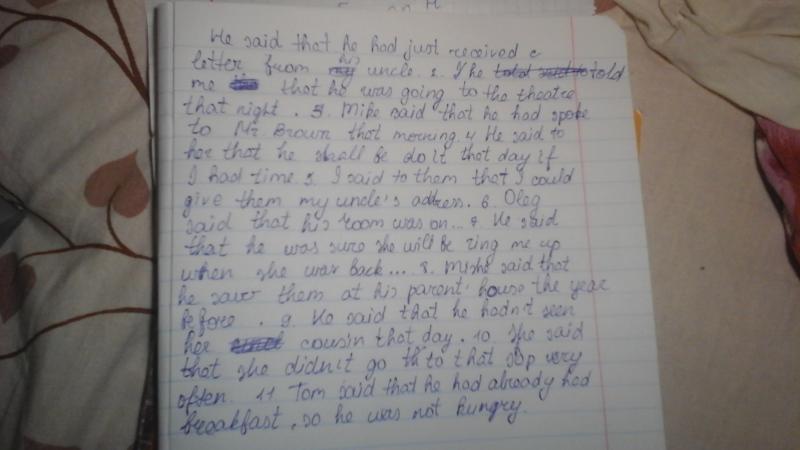 He said that he had just received a
letter from his uncle. 2. The told
me that he was going to the theatre
that night. 3. Mike said that he had spoke
to Mr Brown that morning. 4 He said to
her that he shall be do it that day if
I had time. 5. I said to them that I could
give them my uncle's address. 6. Oleg
said that his room was on... 7. He said
that he was sure she will be ring me up
when she was back... 8. Mishe said that
he saw them at his parent' house the year
before. 9. He said that he hadn't seen
her cousin that day. 10. She said
that she didn't go to that sop very
often. 11 Tom said that he had already had
breakfast, so he was not hungry.